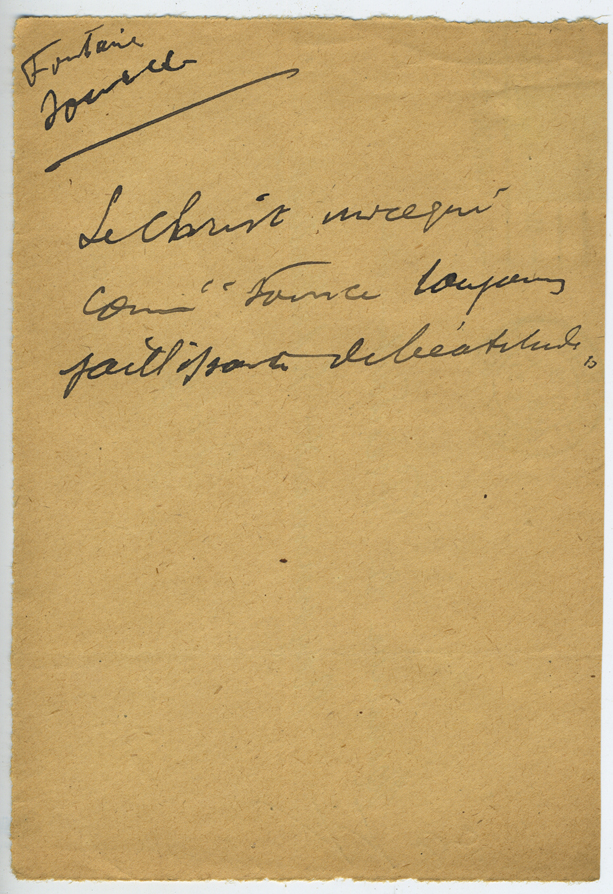 Fontaine
source
Le Christ invoqué
comme "source toujours
jaillissante de béatitude"